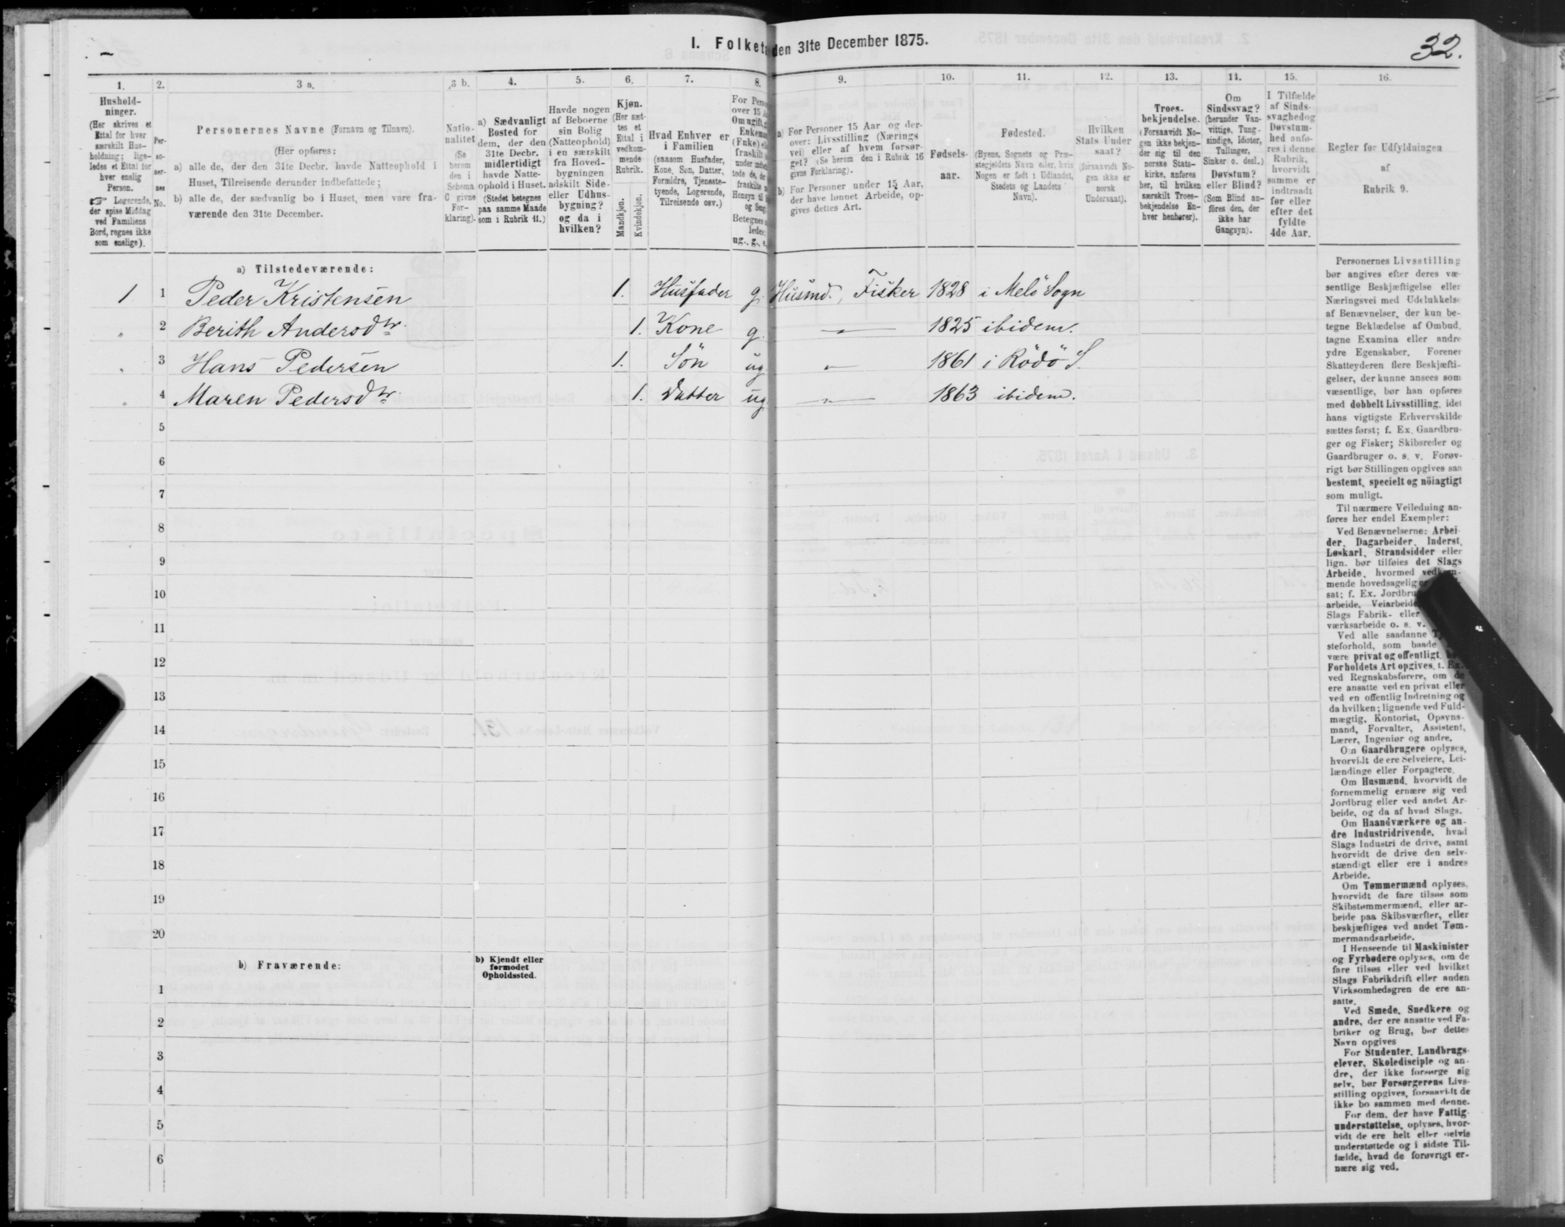 I. Folketa den 31te December 1875.
32.
1.
2.
3 a.
3 b.
4.
5.
6.
7.
8.
9.
10.
11.
12.
13.
14.
15.
16.
Hushold-
ninger.
(Her skrives et
Ettal for hver
særskilt Hus-
holdning; lige-
ledes et Ettal for
hver enslig
Person.
☞ Logerende,
der spise Middag
ved Familiens
Bord, regnes ikke
som enslige).
Per-
so-
ner-
nes
No.
Personernes Navne (Fornavn og Tilnavn).
(Her opføres:
a) alle de, der den 31te Decbr. havde Natteophold i
Huset, Tilreisende derunder indbefattede;
b) alle de, der sædvanlig bo i Huset, men vare fra-
værende den 31te December.
Natio-
nalitet
(Se
herom
den i
Schema
C givne
For-
klaring).
a) Sædvanligt
Bosted for
dem, der den
31te Decbr.
midlertidigt
havde Natte-
ophold i Huset.
(Stedet betegnes
paa samme Maade
som i Rubrik 11.)
Havde nogen
af Beboerne
sin Bolig
(Natteophold)
i en særskilt
fra Hoved-
bygningen
adskilt Side-
eller Udhus-
bygning?
og da i
hvilken?
Kjøn.
(Her sæt-
tes et
Ettal i
vedkom-
mende
Rubrik.
Mandkjøn.
Kvindekjøn.
Hvad Enhver er
i Familien
(saasom Husfader,
Kone, Søn, Datter,
Forældre, Tjeneste-
tyende, Logerende,
Tilreisende osv.)
For Pers
over 15 A
Om ugift,
Enkema
(Fnke) el
fraskilt
ug., g., e.
a) For Personer 15 Aar og der-
over: Livsstilling (Nærings
vei) eller af hvem forsør-
get? (Se herom den i Rubrik 16
givne Forklaring).
b) For Personer under 15 Aar,
der have lønnet Arbeide, op-
gives dettes Art.
Fødsels-
aar.
Fødested.
(Byens, Sognets og Præ-
stegjeldets Navn eller, hvis
Nogen er født i Udlandet,
Stedets og Landets
Navn).
Hvilken
Stats Under
saat?
(forsaavidt No-
gen ikke er
norsk
Undersaat).
Troes-
bekjendelse.
(Forsaavidt No-
gen ikke bekjen-
der sig til den
norske Stats-
kirke, anføres
her, til hvilken
særskilt Troes-
bekjendelse En-
hver henhører).
Om
Sindssvag?
(herunder Van-
vittige, Tung-
sindige, Idioter,
Tullinger,
Sinker o. desl.)
Døvstum?
eller Blind?
(Som Blind an-
føres den, der
ikke har
Gangsyn).
I Tilfælde
af Sinds-
svaghedog
Døvstum-
hed anfø-
res i denne
Rubrik,
hvorvidt
samme er
indtraadt
før eller
efter det
fyldte
4de Aar.
Regler for Udfyldningen
af
Rubrik 9.
a) Tilstedeværende:
1 1 Peder Kristensen 1. Husfader g. Husmd., Fisker 1828 i Melö Sogn
" 2 Berith Andersdtr. 1. Kone g. — " — 1825 ibidem.
" 3 Hans Pedersen 1. Søn ug — " — 1861 i Rödö S.
" 4 Maren Pedersdtr. 1. Datter ug — " — 1863 ibidem.
5
6
7
8
9
10
11
12
13
14
15
16
17
18
19
20
b) Fraværende:
b) Kjendt eller
formodet
Opholdssted.
1
2
3
4
5
6
Personernes Livsstilling
bør angives efter deres væ-
sentlige Beskjæftigelse eller
Næringsvei med Udelukkelse
af Benævnelser, der kun be-
tegne Beklædelse af Ombud,
tagne Examina eller andre
ydre Egenskaber. Forener
Skatteyderen flere Beskjæfti-
gelser, der kunne ansees som
væsentlige, bør han opføres
med dobbelt Livsstilling, idet
hans vigtigste Erhvervskilde
sættes først; f. Ex. Gaardbru-
ger og Fisker; Skibsreder og
Gaardbruger o. s. v. Forøv-
rigt bør Stillingen opgives saa
bestemt, specielt og nöiagtigt
som muligt.
Til nærmere Veiledning an-
føres her endel Exempler:
Ved Benævnelserne: Arbei-
der, Dagarbeider, Inderst,
Løskarl, Strandsidder eller
lign. bør tilføies det Slags
Arbeide, hvormed
mende hovedsagelig
sat; f. Ex. Jordbru
arbeide, Veiarbeide
Slags Fabrik- eller
værksarbeide o. s. v.
Ved alle saadanne
steforhold, som baade
være privat og offentligt,
Forholdets Art opgives, t. Ex.
ved Regnskabsførere, om de
ere ansatte ved en privat eller
ved en offentlig Indretning og
da hvilken; lignende ved Fuld-
mægtig, Kontorist, Opsyns-
mand, Forvalter, Assistent,
Lærer, Ingeniør og andre.
Om Gaardbrugere oplyses,
hvorvidt de ere Selveiere, Lei-
lændinge eller Forpagtere.
Om Husmænd, hvorvidt de
fornemmelig ernære sig ved
Jordbrug eller ved andet Ar-
beide, og da af hvad Slags.
Om Haandværkere og an-
dre Industridrivende, hvad
Slags Industri de drive, samt
hvorvidt de drive den selv-
stændigt eller ere i andres
Arbeide.
Om Tømmermænd oplyses,
hvorvidt de fare tilsøs som
Skibstømmermænd, eller ar-
beide paa Skibsværfter, eller
beskjæftiges ved andet Tøm-
mermandsarbeide.
I Henseende til Maskinister
og Fyrbødere oplyses, om de
fare tilsøs eller ved hvilket
Slags Fabrikdrift eller anden
Virksomhedsgren de ere an-
satte.
Ved Smede, Snedkere og
andre, der ere ansatte ved Fa-
briker og Brug, bør dettes
Navn opgives
For Studenter, Landbrugs-
elever, Skoledisciple og an-
dre, der ikke forsørge sig
selv, bør Forsørgerens Livs-
stilling opgives, forsaavidt de
ikke bo sammen med denne.
For dem, der have Fattig-
understøttelse, oplyses, hvor-
vidt de ere helt eller delvis
understøttede og i sidste Til-
fælde, hvad de forøvrigt er-
nære sig ved.